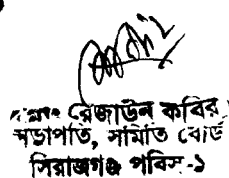 রেজাউল কবির
সভাপতি, সমিতি বোর্ড
সিরাজগঞ্জ পবিস-১